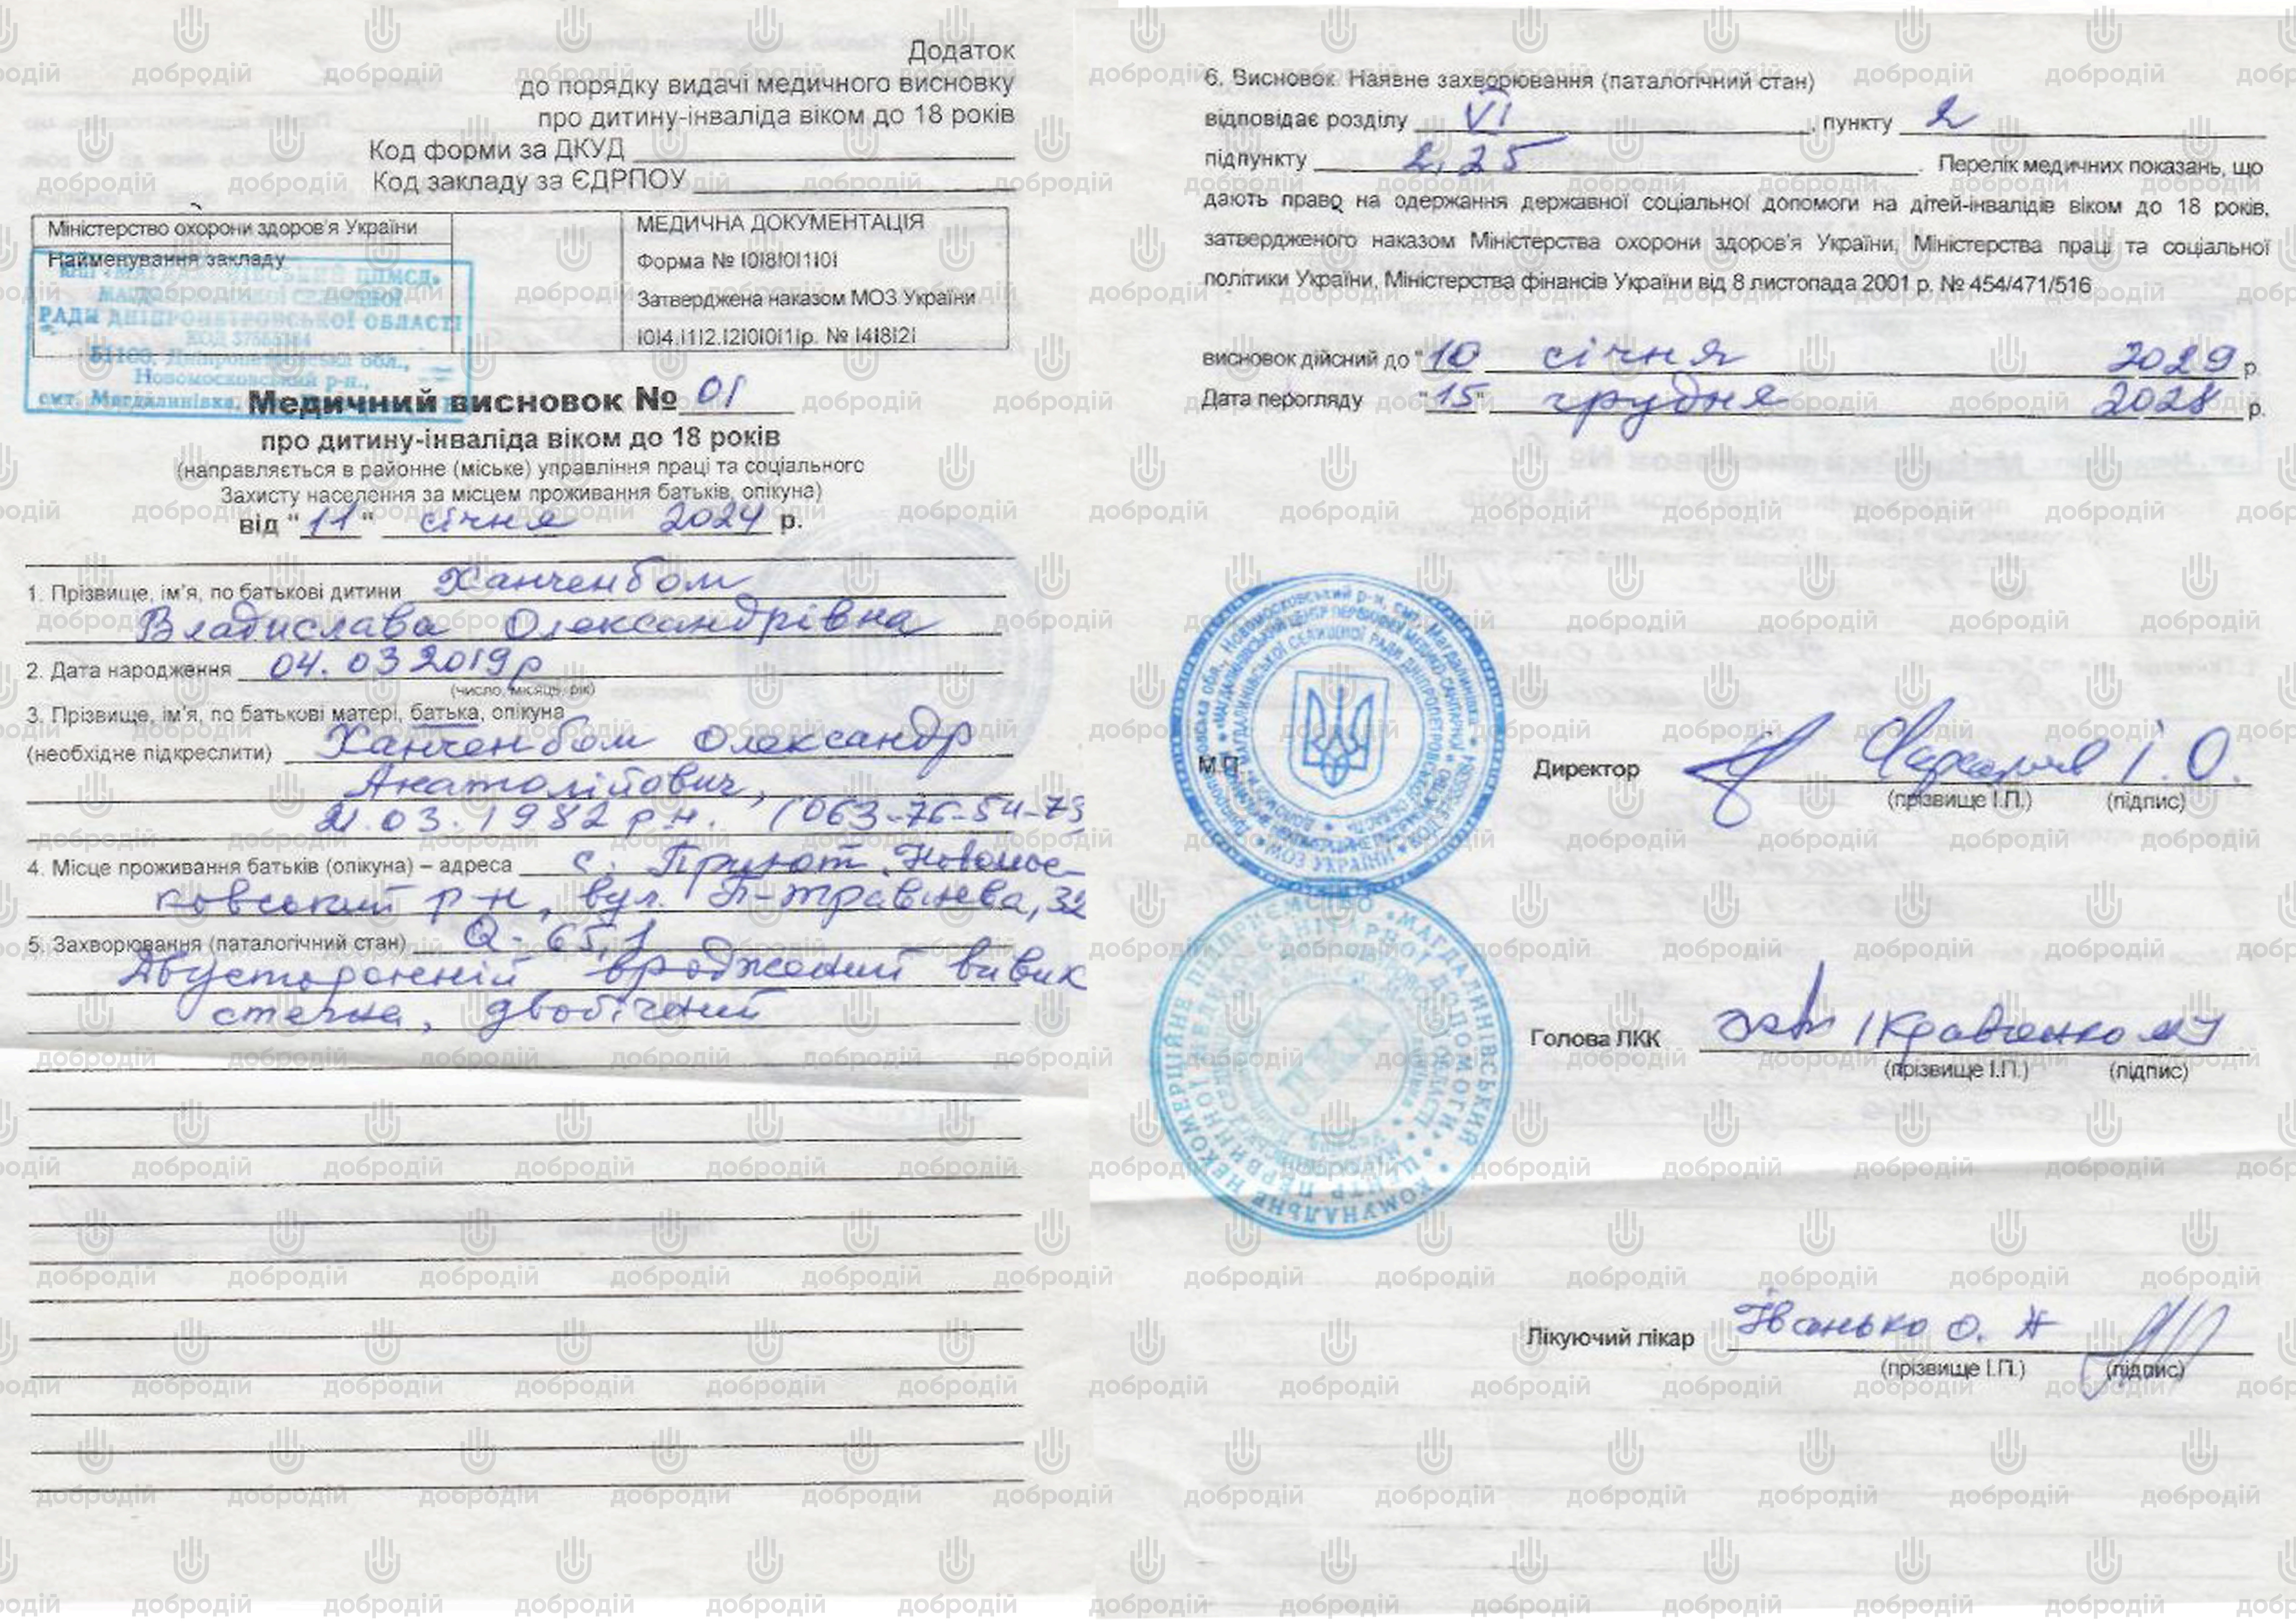 Додаток
до порядку видачі медичного висновку
про дитину-інваліда віком до 18 років
Код форми за ДКУД
Код закладу за ЄДРПОУ
Міністерство охорони здоров'я України
Найменування закладу
МЕДИЧНА ДОКУМЕНТАЦІЯ
Форма № І0І8І0І1І0І
Затверджена наказом МОЗ України
І0І4.І1І2.І2І0І0І1Ір. № І4І8І2І
РАДИ ДНІПРОПЕТРОВСЬКОЇ ОБЛАСТІ
51100, Дніпропетровська обл.,
Новомосковський р-н.,
смт. Магдалинівка,
Медичний висновок № 01
про дитину-інваліда віком до 18 років
(направляється в районне (міське) управління праці та соціального
Захисту населення за місцем проживання батьків, опікуна)
від "11" січня 2024 р.
1. Прізвище, ім'я, по батькові дитини Ханченбом
Владислава Олександрівна
2. Дата народження 04.03 2019р
(число, місяць, рік)
3. Прізвище, ім'я, по батькові матері, батька, опікуна
(необхідне підкреслити) Ханченбом Олександр
Анатолійович,
21.03.1982 р.н. (063-76-54-73
4. Місце проживання батьків (опікуна) – адреса с. Приют Новомос-
ковський р-н, вул. П-травнева, 32
5. Захворювання (паталогічний стан) Q-65,1
Двусторонній вроджений вивих
стегна, двобічний
6. Висновок. Наявне захворювання (паталогічний стан)
відповідає розділу VI, пункту 2
підпункту 2,25. Перелік медичних показань, що
дають право на одержання державної соціальної допомоги на дітей-інвалідів віком до 18 років,
затвердженого наказом Міністерства охорони здоров'я України, Міністерства праці та соціальної
політики України, Міністерства фінансів України від 8 листопада 2001 р. № 454/471/516
висновок дійсний до "10 січня 2029 р.
Дата перогляду "15" грудня 2028 р.
М.П.
МОЗ УКРАЇНИ
Директор І.О.
(прізвище І.П.) (підпис)
ЛКК
Голова ЛКК Кравченко
(прізвище І.П.) (підпис)
Лікуючий лікар Іванько О. А
(прізвище І.П.) (підпис)
добродій